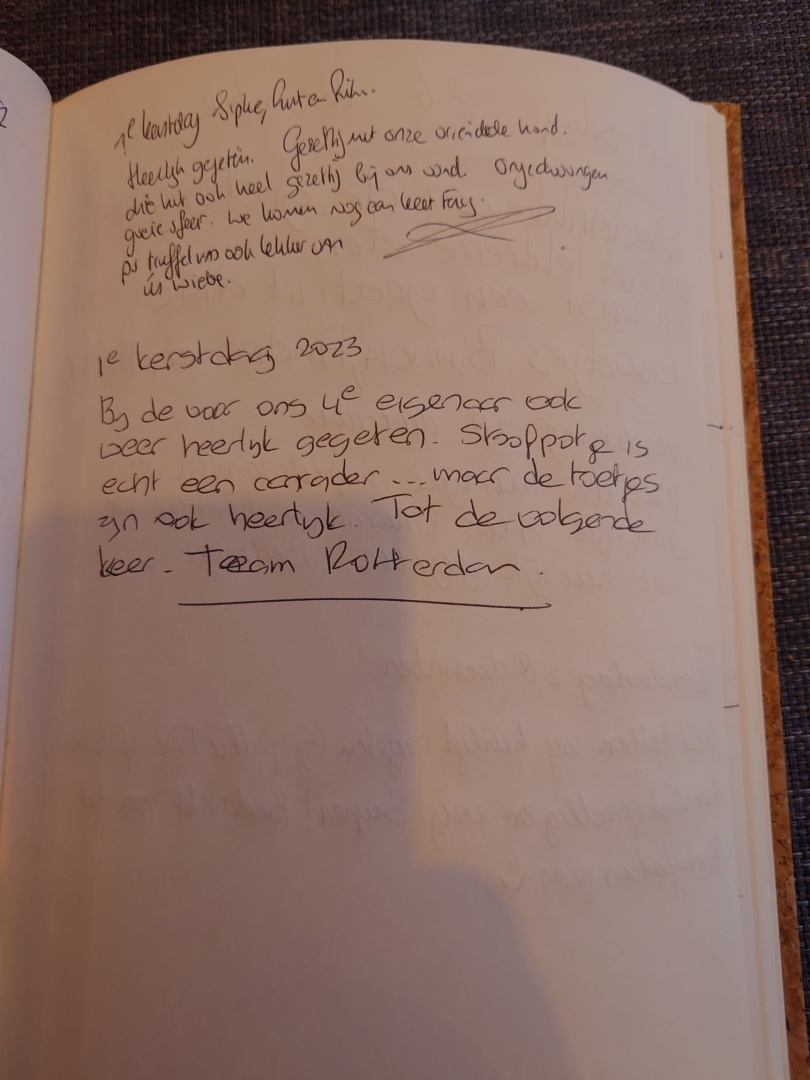 1e kerstdag Sipke, Rut en
Heerlijk gegeten. Gezellig met onze vriendele hond.
die het ook heel gezellig bij ons vond. Ongedwongen
goeie sfeer. We komen nog een keer
ps truffel was ook lekker van
ús Wiebe.
1e kerstdag 2023
Bij de voor ons 4e eigenaar ook
weer heerlijk gegeten. Stoofpotje is
echt een aanrader ... maar de toetjes
zijn ook heerlijk. Tot de volgende
keer - Team Rotterdam.